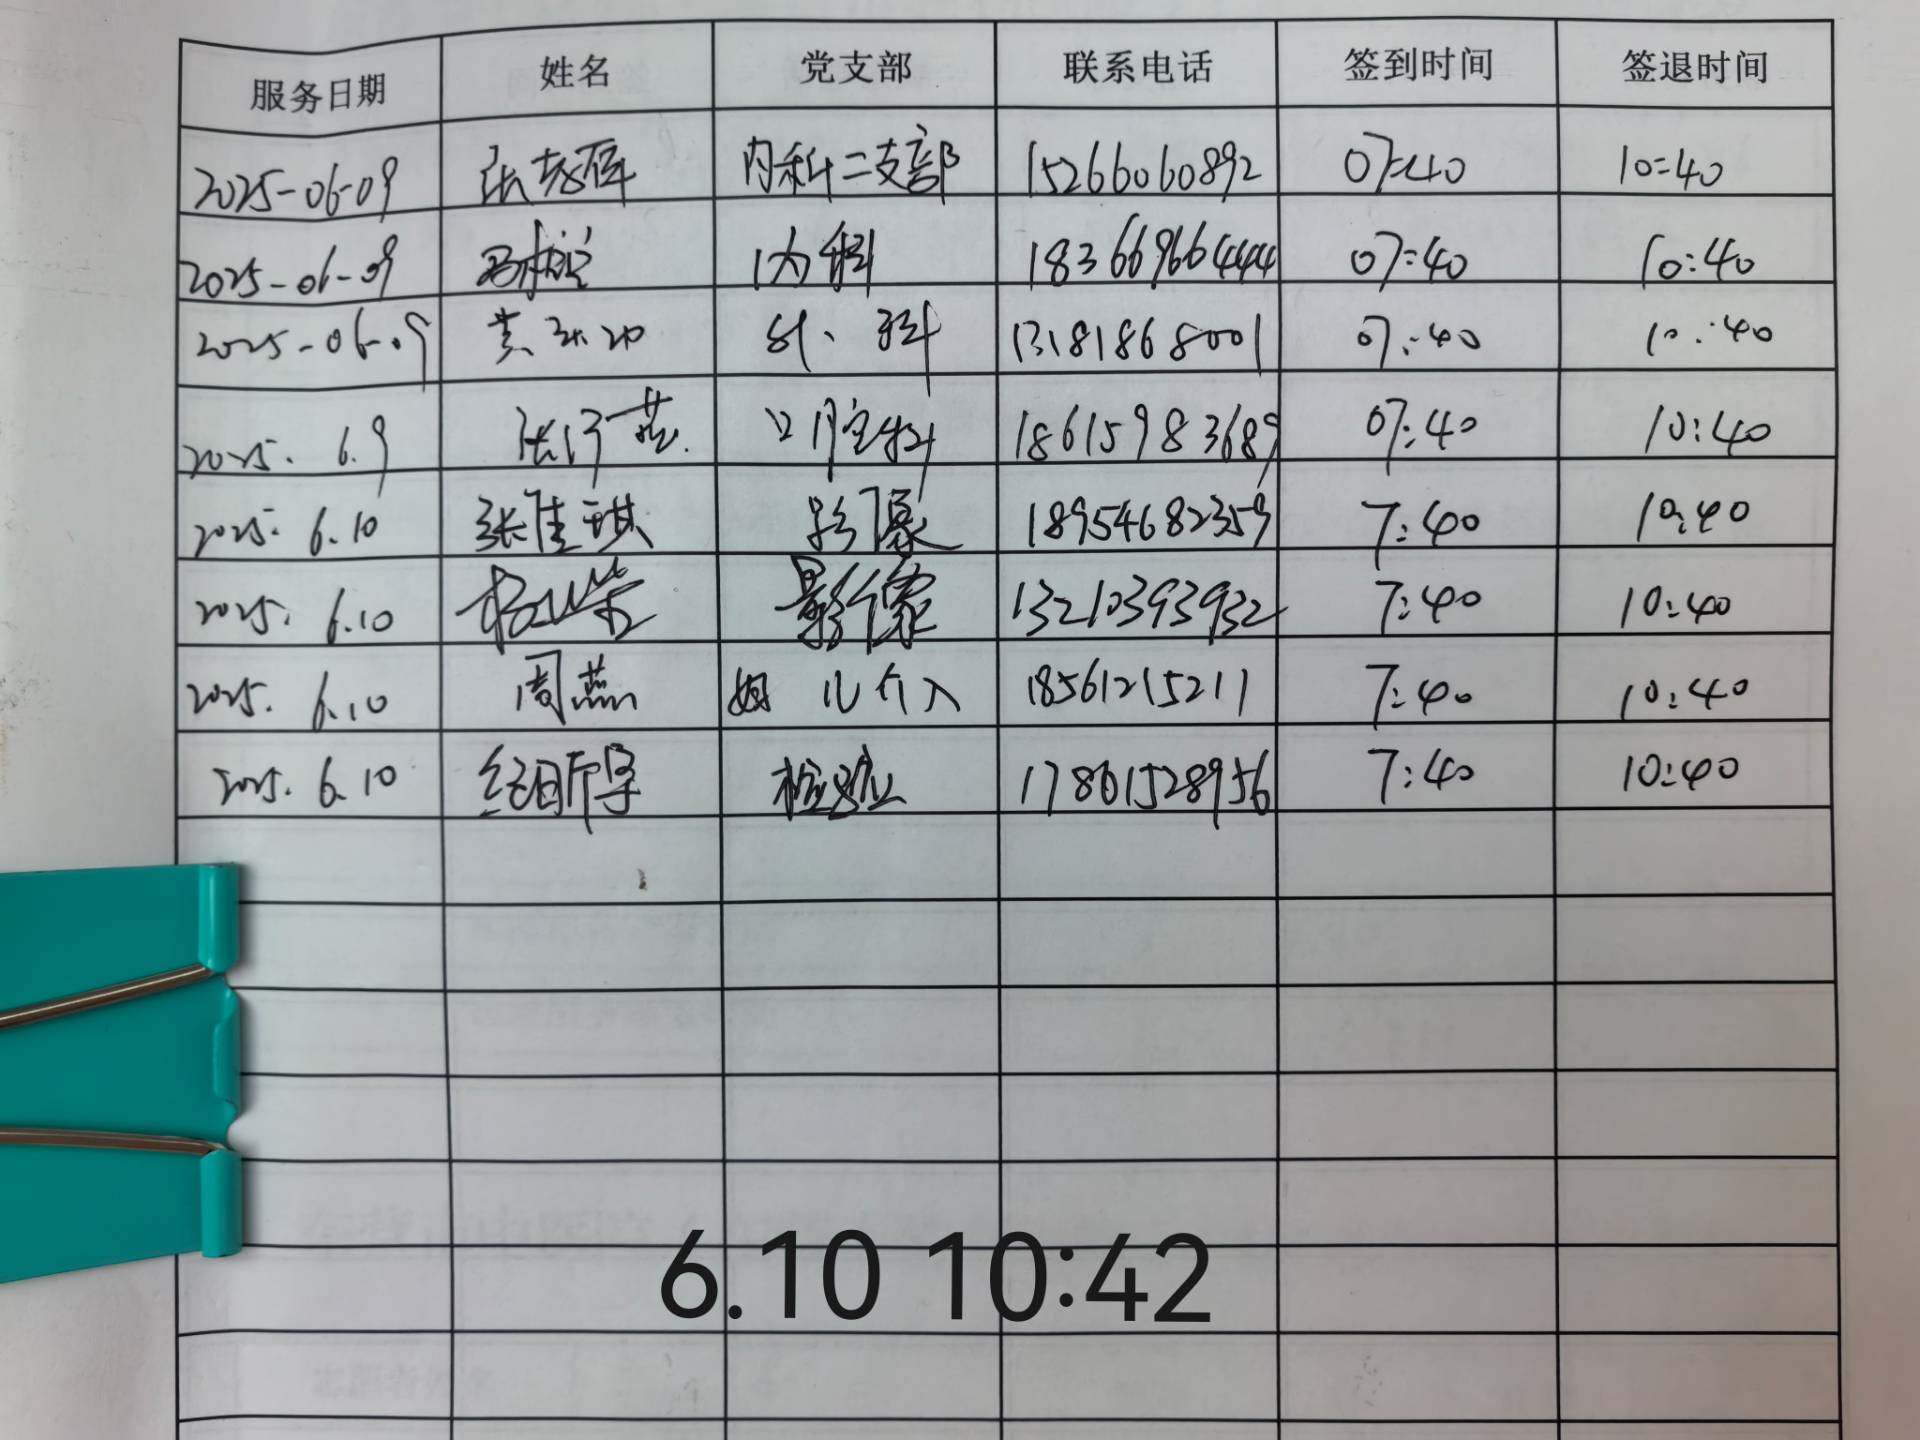 服务日期 姓名 党支部 联系电话 签到时间 签退时间
2025-06-09 张 内科二支部 15266060892 07:40 10:40
2025-06-09 内科 18366966444 07:40 10:40
2025-06-09 黄 外科 13181868001 07:40 10:40
2025. 6.9 张 燕 口腔科 18615983689 07:40 10:40
2025. 6.10 张佳琪 影像 18954682359 7:40 10:40
2025. 6.10 杨 影像 13210393932 7:40 10:40
2025. 6.10 周燕 妇儿介入 18561215211 7:40 10:40
2025. 6.10 检验 17861528956 7:40 10:40
6.10 10:42